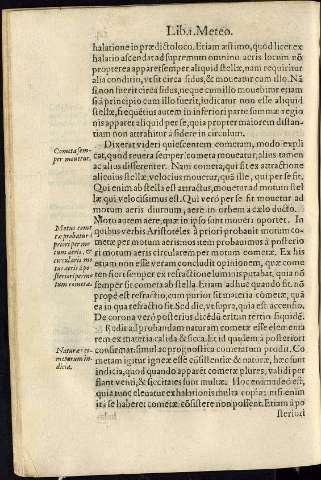 Lib.i. Meteo.
halatione in prædicto loco. Etiam æstimo, quòd licet ex
halatio ascendat ad supremum omnino aeris locum nō
propterea apparet semper aliquid stellæ, nam requiritur
alia conditio, vt sit circa sidus, & moueatur cum illo. Nā
si non fuerit circa sidus, neque cum illo mouebitur etiam
si à principio cum illo fuerit, iudicatur non esse aliquid
stellæ, frequētius autem in inferiori parte summæ regio
nis apparet aliquid per se, quia propter maiorem distan-
tiam non attrahitur à sidere in circulum.
Cometa sem-
per mouetur.
Dixerat videri quiescentem cometam, modo expli
cat, quòd reuera semper cometa mouetur, alius tamen
ac alius differenter. Nam cometa, qui fit ex attractione
alicuius stellæ, velocius mouetur, quā ille, qui per se fit.
Qui enim ab stella est attractus, mouetur ad motum stel
læ qui velocissimus est. Qui verò per se fit mouetur ad
motum aeris diurnum, aere in orbem à cælo ducto.
Motus comē
tæ probatur à
priori per mo
tum aeris, &
circularis mo
tus aeris à po-
steriori per mo
tum cometæ.
Moto autem aere, quæ in ipso sunt moueri oportet. In
quibus verbis Aristoteles à priori probauit motum co-
metæ per motum aeris: nos item probauimus à posterio
ri motum aeris circularem per motum cometæ. Ex his
etiam non esse veram concludit opinionem, quæ come
ten fieri semper ex refractione luminis putabat, quia nō
semper fit cometa ab stella. Etiam adhuc quando fit nō
propè est refractio, cum purior sit materia cometæ, quā
ea in qua refractio fit. Sed dic, vt supra, quia est accensio.
De corona verò posterius dicēdū erit in tertio. sig.dē.
Naturæ co-
metarum in-
dicia.
Rudit ad probandam naturam cometæ esse elementa
rem ex materia calida & sicca. Et id quidem à posteriori
confirmat, simul ac prognostica cometarum prodit. Co
metam igitur igneæ esse cōsistentiæ & naturæ, hæc sunt
indicia, quòd quando apparēt cometæ plures, validi per
flant venti, & siccitates sunt multæ. Hoc enim adest, qui
quia tunc eleuatur exhalationis multa copia: nisi enim
ita se haberet cometæ cōsistere non possent. Etiam à po
steriori